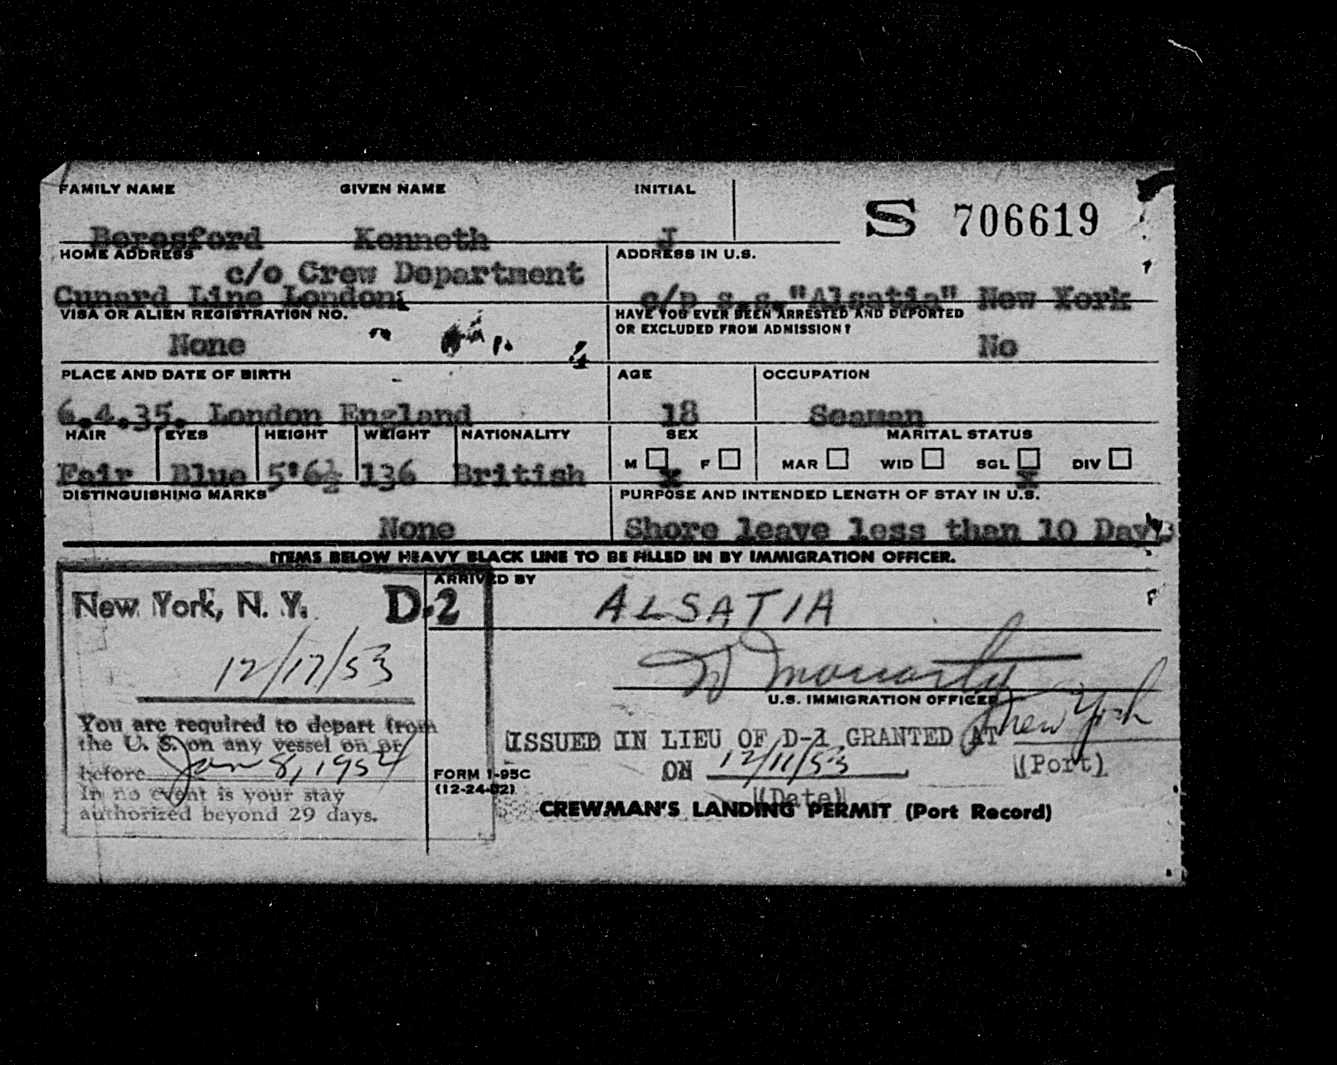 FAMILY NAME GIVEN NAME INITIAL
S 706619
Beresford Kenneth J
HOME ADDRESS ADDRESS IN U.S.
c/o Crew Department
Cunard Line London. c/p s.s."Alsatia" New York
VISA OR ALIEN REGISTRATION NO. HAVE YOU EVER BEEN ARRESTED AND DEPORTED
OR EXCLUDED FROM ADMISSION?
None No
PLACE AND DATE OF BIRTH AGE OCCUPATION
6.4.35. London England 18 Seaman
HAIR EYES HEIGHT WEIGHT NATIONALITY SEX MARITAL STATUS
M F MAR WID SGL DIV
Fair Blue 5'6½ 136 British x x
DISTINGUISHING MARKS PURPOSE AND INTENDED LENGTH OF STAY IN U.S.
None Shore leave less than 10 Days
ITEMS BELOW HEAVY BLACK LINE TO BE FILLED IN BY IMMIGRATION OFFICER.
ARRIVED BY
New York, N. Y. D-2 ALSATIA
12/17/53
W Moriarty
U.S. IMMIGRATION OFFICER
You are required to depart from
the U. S. on any vessel on or
before Jan 8, 1954
In no event is your stay
authorized beyond 29 days.
ISSUED IN LIEU OF D-1 GRANTED AT New York
(Port)
ON 12/11/53
(Date)
FORM I-95C
(12-24-52)
CREWMAN'S LANDING PERMIT (Port Record)